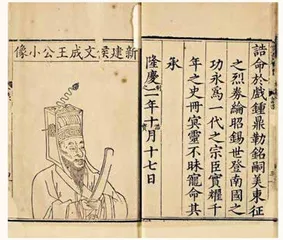 誥命於戲鍾鼎勒銘嗣美東征
之烈券綸昭錫世登南國之
功永為一代之宗臣實耀千
年之史冊冥靈不昧寵命其
承
隆慶二年十月十七日
新建侯文成王公小像